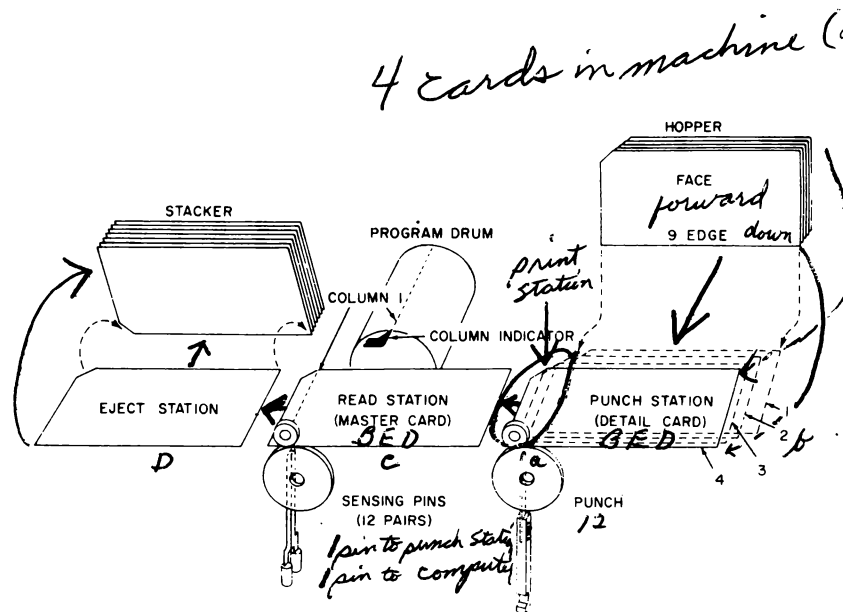 4 cards in machine (
HOPPER
FACE
forward
9 EDGE down
STACKER
PROGRAM DRUM
print
station
COLUMN 1
COLUMN INDICATOR
EJECT STATION
D
READ STATION
(MASTER CARD)
BED
C
PUNCH STATION
(DETAIL CARD)
BED
a
1
2
3
4
b
SENSING PINS
(12 PAIRS)
1 pin to punch Stati
1 pin to compute
PUNCH
12